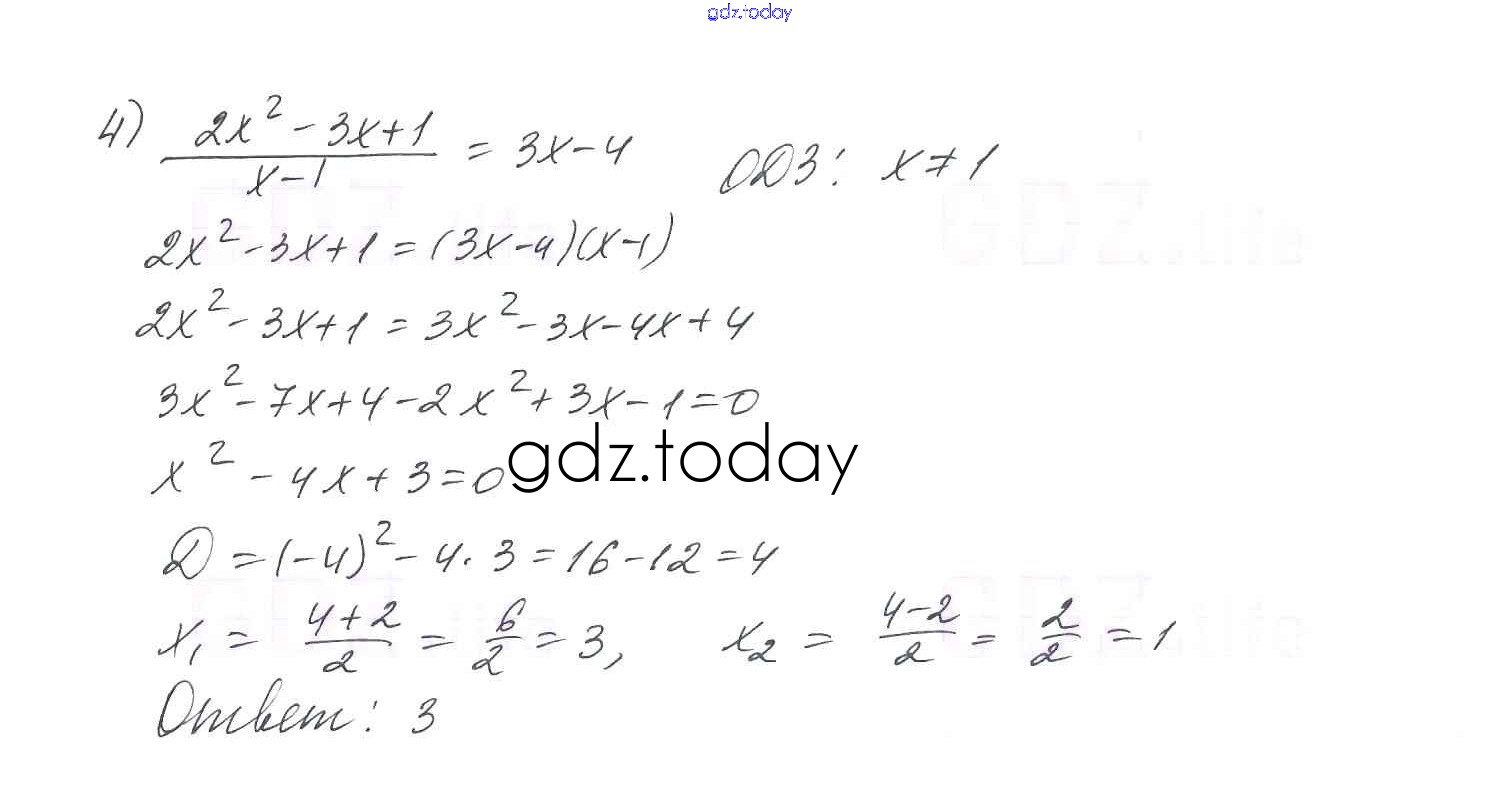 gdz.today
4) (2x² - 3x + 1)/(x - 1) = 3x - 4 ОДЗ: x ≠ 1
2x² - 3x + 1 = (3x - 4)(x - 1)
2x² - 3x + 1 = 3x² - 3x - 4x + 4
3x² - 7x + 4 - 2x² + 3x - 1 = 0
x² - 4x + 3 = 0
gdz.today
D = (-4)² - 4 · 3 = 16 - 12 = 4
x₁ = (4 + 2)/2 = 6/2 = 3, x₂ = (4 - 2)/2 = 2/2 = 1
Ответ: 3